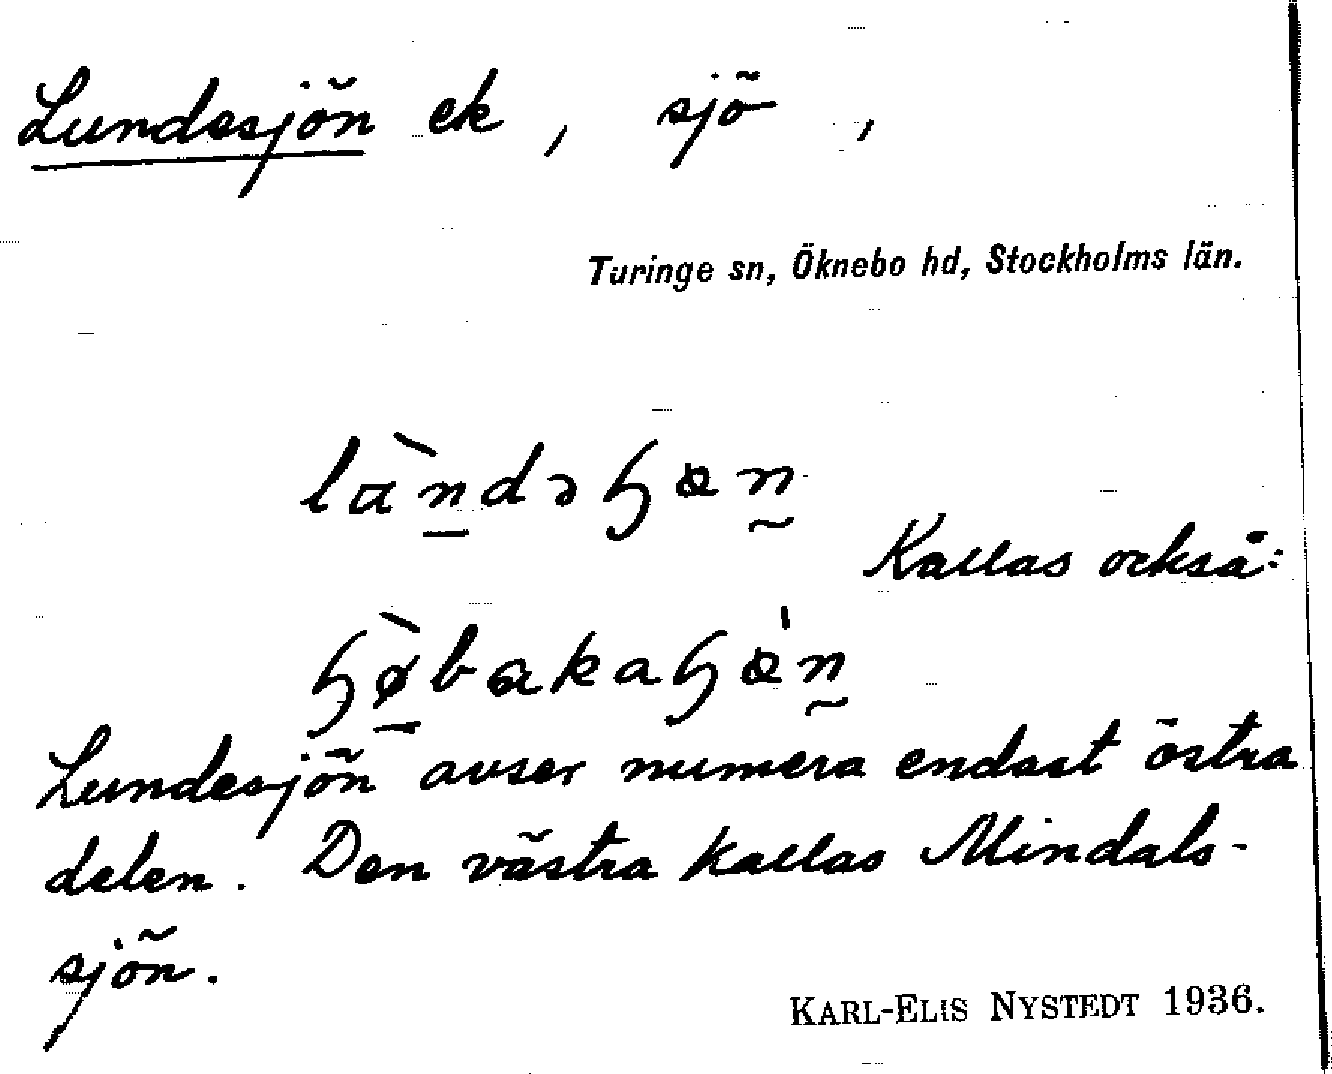 Lundesjön ek, sjö,
Turinge sn, Öknebo hd, Stockholms län.
Kallas också:
Lundesjön avser numera endast östra
delen. Den västra kallas Mindals-
sjön.
KARL-ELIS NYSTEDT 1936.